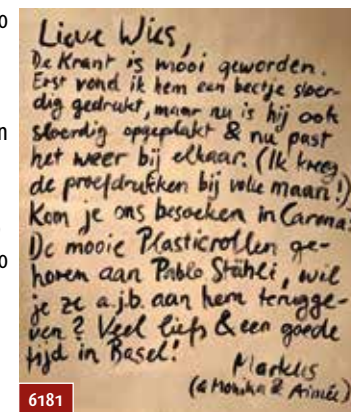 Lieve Wies,
De Krant is mooi geworden.
Eerst vond ik hem een beetje sloer-
dig gedrukt, maar nu is hij ook
sloerdig opgeplakt & nu past
het weer bij elkaar. (Ik kreeg
de proefdrukken bij volle maan!)
Kom je ons besoeken in Carona?
De mooie Plasticrollen ge-
horen aan Pablo Stähli, wil
je ze a.j.b. aan hem terugge-
ven? Veel liefs & een goede
tijd in Basel!
Markus
(& Monika & Aimée)
6181